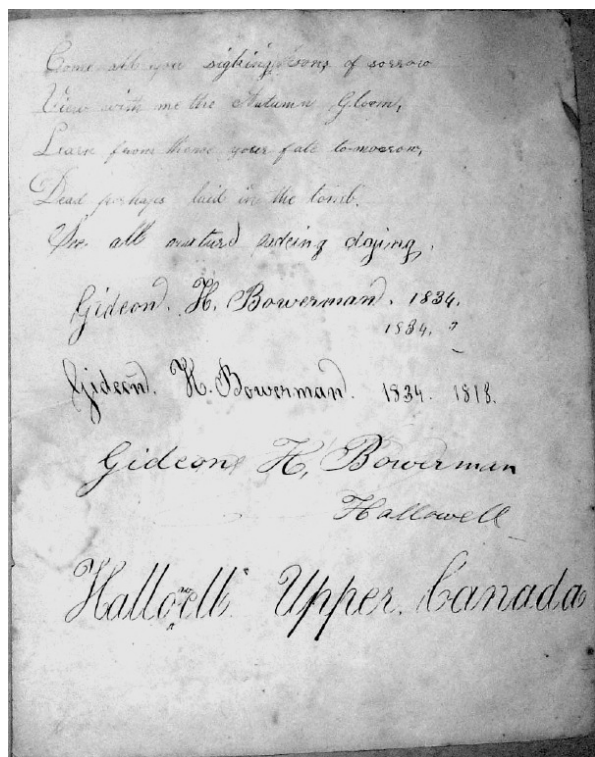 Come all you sighing sons of sorrow
View with me the Autumn Gloom,
Learn from thence your fate tomorrow,
Dead perhaps laid in the tomb.
all dying,
Gideon. H. Bowerman. 1834.
1834.
Gideon. H. Bowerman. 1834. 1818.
Gideon H, Bowerman
Hallowell
Upper. Canada